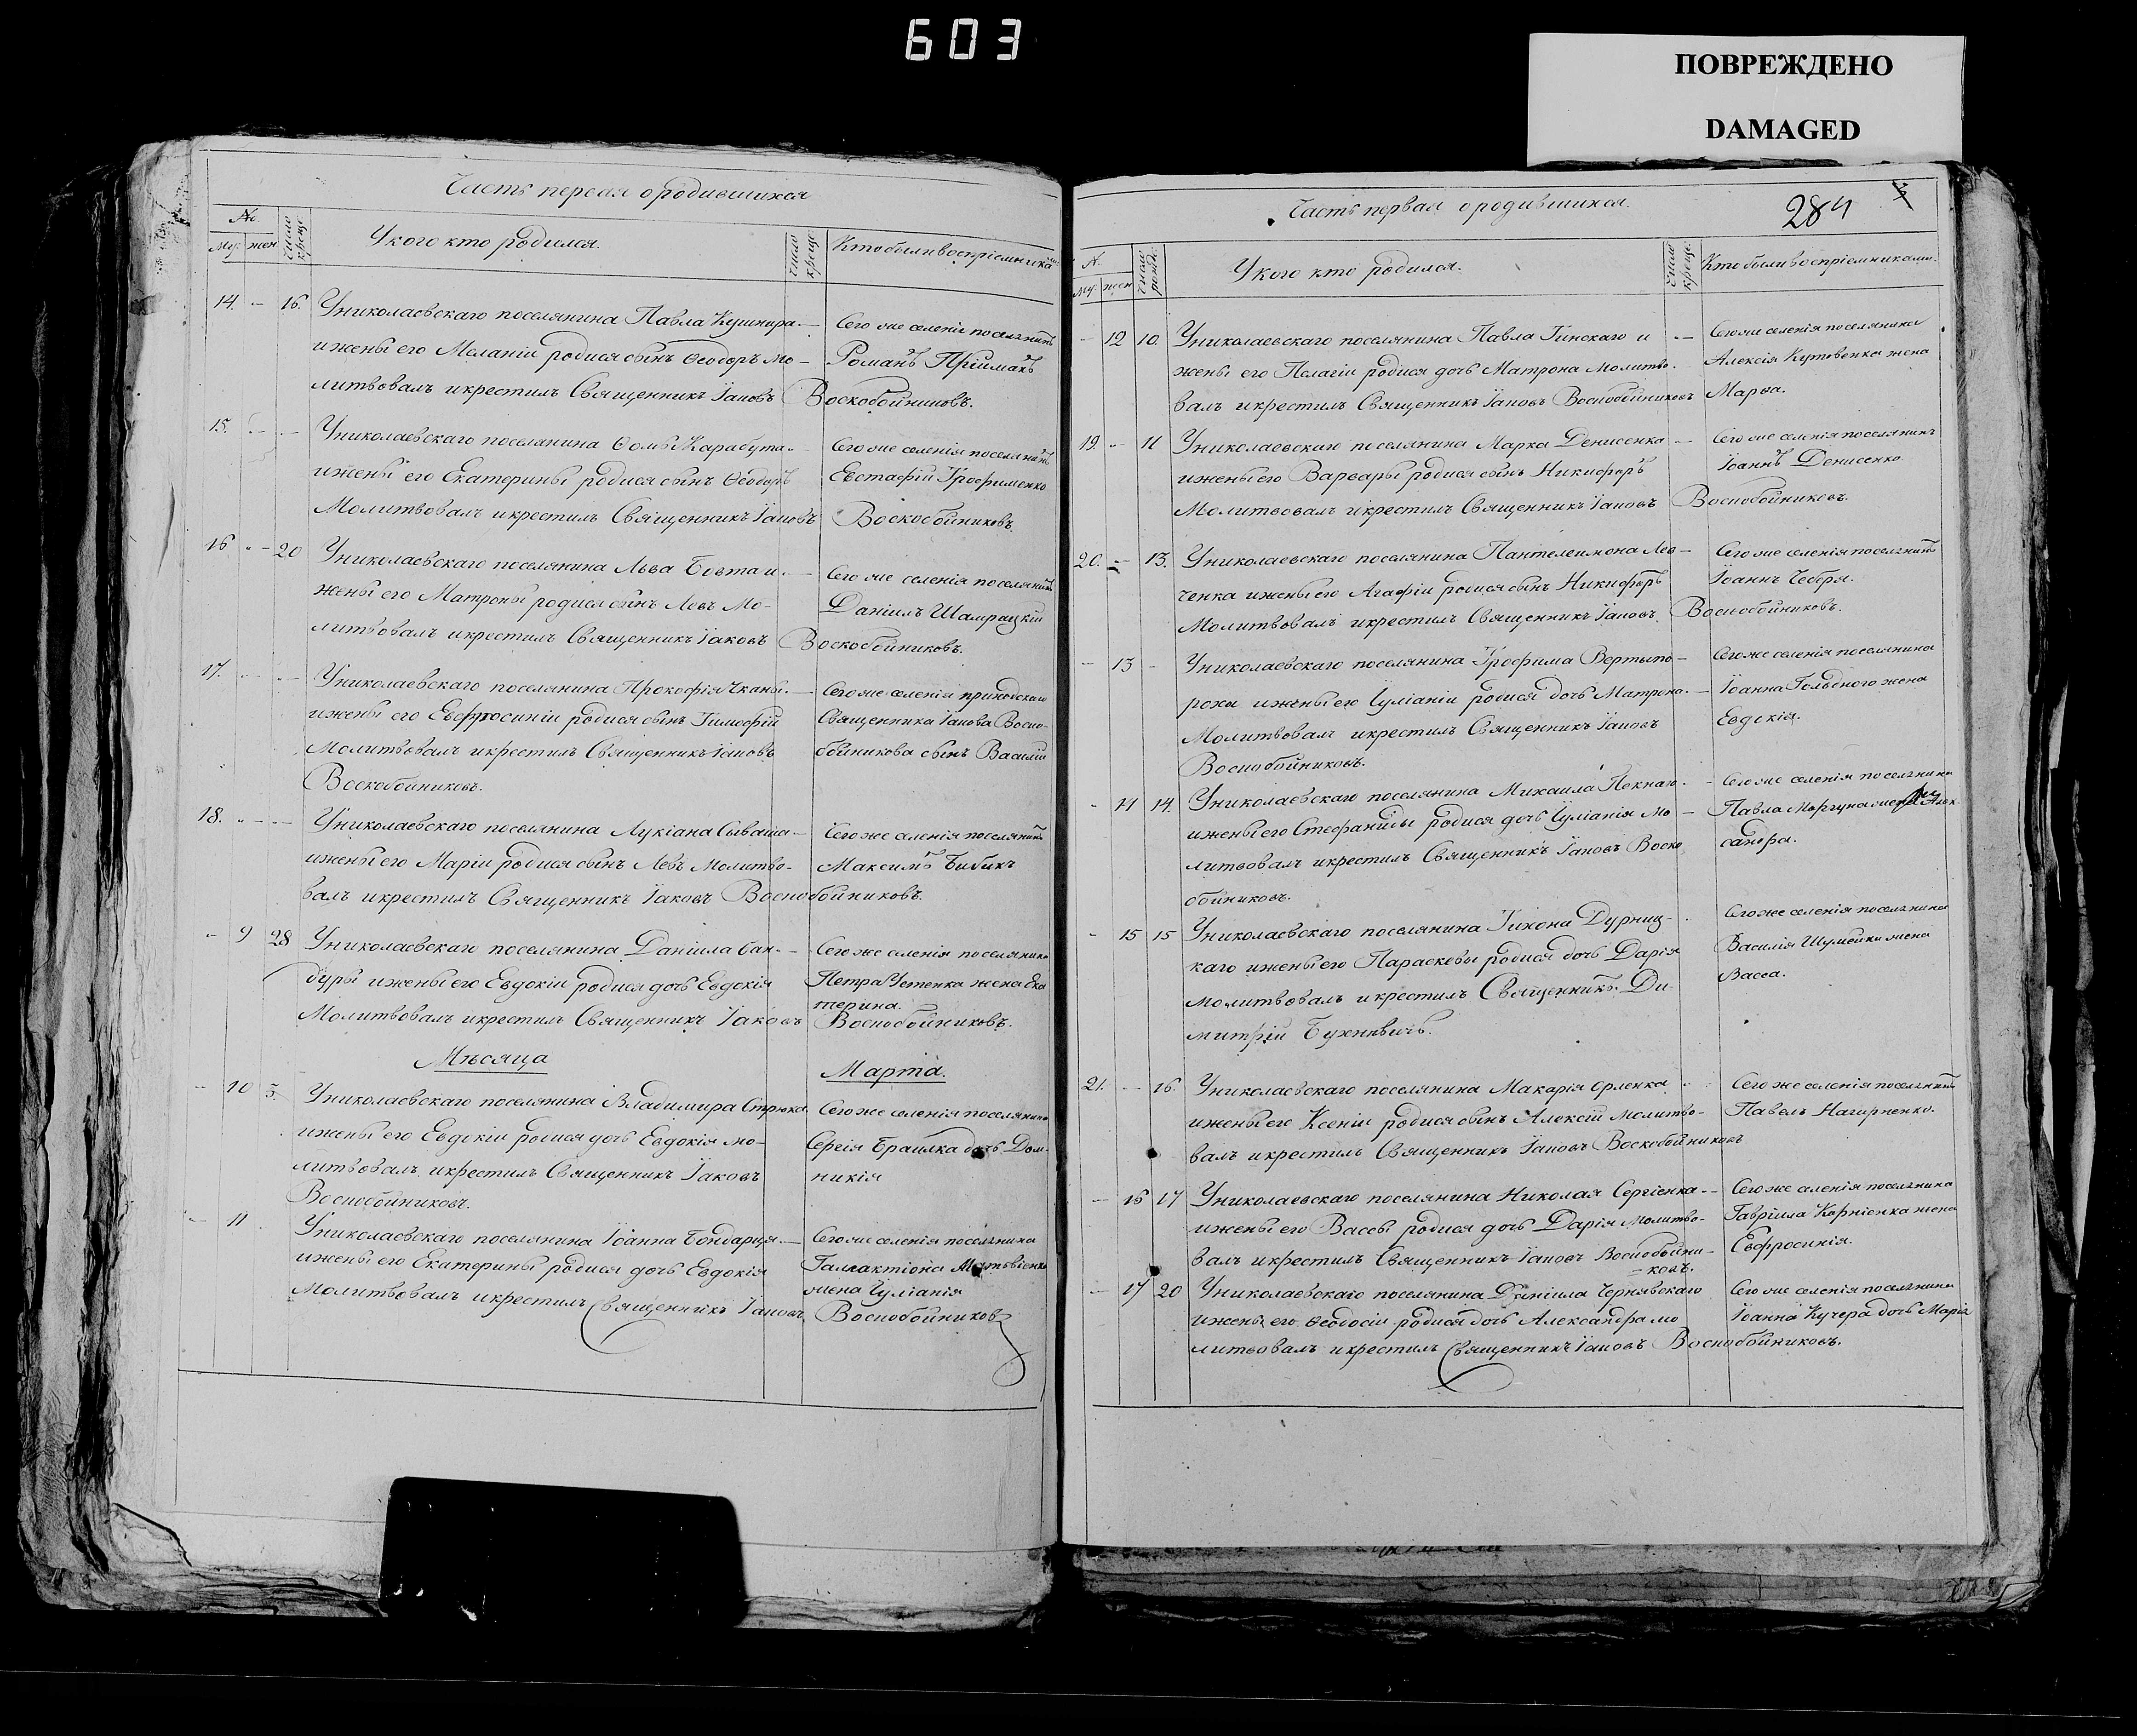 603
ПОВРЕЖДЕНО
DAMAGED
Часть первая о родившихся
№
Му: жен
Число креще:
У кого кто родился.
Число креще:
Кто были воспріемника
14. — 16. У николаевскаго поселянина Павла Кушнира. — Сего же селенія поселянинъ
и жены его Меланіи родися сынъ Ѳеодоръ Мо- Романъ Пріймакъ
литвовалъ и крестилъ Священникъ Іаковъ Воскобойниковъ.
15. — — У николаевскаго поселянина Ѳомы Карабута. Сего же селенія поселянинъ
и жены его Екатерины родися сынъ Ѳеодоръ Евстафій Трофименко
Молитвовалъ и крестилъ Священникъ Іаковъ Воскобойниковъ.
16 — 20 У николаевскаго поселянина Льва Бовта и. — Сего же селенія поселянинъ
жены его Матроны родися сынъ Левъ Мо- Даніилъ Шамрацкій
литвовалъ и крестилъ Священникъ Іаковъ Воскобойниковъ.
17. — — У николаевскаго поселянина Прокофія Чканы. — Сего же селенія приходскаго
и жены его Евфросиніи родися сынъ Тимофій Священника Іакова Воско-
Молитвовалъ и крестилъ Священникъ Іаковъ бойникова сынъ Василій
Воскобойниковъ.
18. — — У николаевскаго поселянина Лукіана Сываша — Сего же селенія поселянинъ
и жены его Маріи родися сынъ Левъ Молитво- Максимъ Бибикъ
валъ и крестилъ Священникъ Іаковъ Воскобойниковъ.
- 9 28 У николаевскаго поселянина Даніила Бан- — Сего же селенія поселянина
дуры и жены его Евдокіи родися дочь Евдокія Петра Устенка жена Ека
терина.
Молитвовалъ и крестилъ Священникъ Іаковъ Воскобойниковъ.
Мѣсяца Марта.
- 10 3. У николаевскаго поселянина Владимира Стрюка Сего же селенія поселянина
и жены его Евдокіи родися дочь Евдокія мо- Сергія Браилка дочь Дом-
литвовалъ и крестилъ Священникъ Іаковъ никія
Воскобойниковъ.
- 11 У николаевскаго поселянина Іоанна Бондарця. — Сего же селенія поселянина
и жены его Екатерины родися дочь Евдокія Галактіона Матвіенка
жена Іуліанія
Молитвовалъ и крестилъ Священникъ Іаковъ Воскобойниковъ
Часть первая о родившихся.
284
№
Му: жен
Число рожд:
У кого кто родился.
Число креще:
Кто были воспріемниками.
- 12 10. У николаевскаго поселянина Павла Гинскаго и — Сего же селенія поселянина
жены его Пелагіи родися дочь Матрона Молитво- Алексія Кутовенка жена
валъ и крестилъ Священникъ Іаковъ Воскобойниковъ Марѳа.
19. - 11 У николаевскаго поселянина Марка Денисенка — Сего же селенія поселянинъ
и жены его Варвары родися сынъ Никифоръ Іоаннъ Денисенко
Молитвовалъ и крестилъ Священникъ Іаковъ Воскобойниковъ.
20. — 13. У николаевскаго поселянина Пантелеимона Лев- Сего же селенія поселянинъ
ченка и жены его Агафіи родися сынъ Никифоръ Іоаннъ Чебря.
Молитвовалъ и крестилъ Священникъ Іаковъ Воскобойниковъ.
- 13 - У николаевскаго поселянина Трофима Вертыпо- Сего же селенія поселянина
роха и жены его Іуліаніи родися дочь Матрона. — Іоанна Гольдного жена
Молитвовалъ и крестилъ Священникъ Іаковъ Евдокія.
Воскобойниковъ.
- 14 14. У николаевскаго поселянина Михаила Покнаго. — Сего же селенія поселянина
и жены его Стефаниды родися дочь Іуліанія Мо- Павла Моргуна жена Алек-
литвовалъ и крестилъ Священникъ Іаковъ Воско сандра.
бойниковъ.
- 15 15 У николаевскаго поселянина Тихона Дурниц- Сего же селенія поселянина
каго и жены его Параскевы родися дочь Дарія Василія Шумейки жена
молитвовалъ и крестилъ Священникъ Ди- Васса.
митрій Бухневичъ.
21. — 16. У николаевскаго поселянина Макарія Орленка Сего же селенія поселянинъ
и жены его Ксеніи родися сынъ Алексій Молитво- Павелъ Нагирненко.
валъ и крестилъ Священникъ Іаковъ Воскобойниковъ
- 16 17 У николаевскаго поселянина Николая Сергіенка — Сего же селенія поселянина
и жены его Вассы родися дочь Дарія Молитво- Гавріила Корніенка жена
валъ и крестилъ Священникъ Іаковъ Воскобойни- Евфросинія.
ковъ.
- 17 20 У николаевскаго поселянина Даніила Чернявскаго Сего же селенія поселянина
и жены его Ѳеодосіи родися дочь Александра мо Іоанна Кучера дочь Марія
литвовалъ и крестилъ Священникъ Іаковъ Воскобойниковъ.